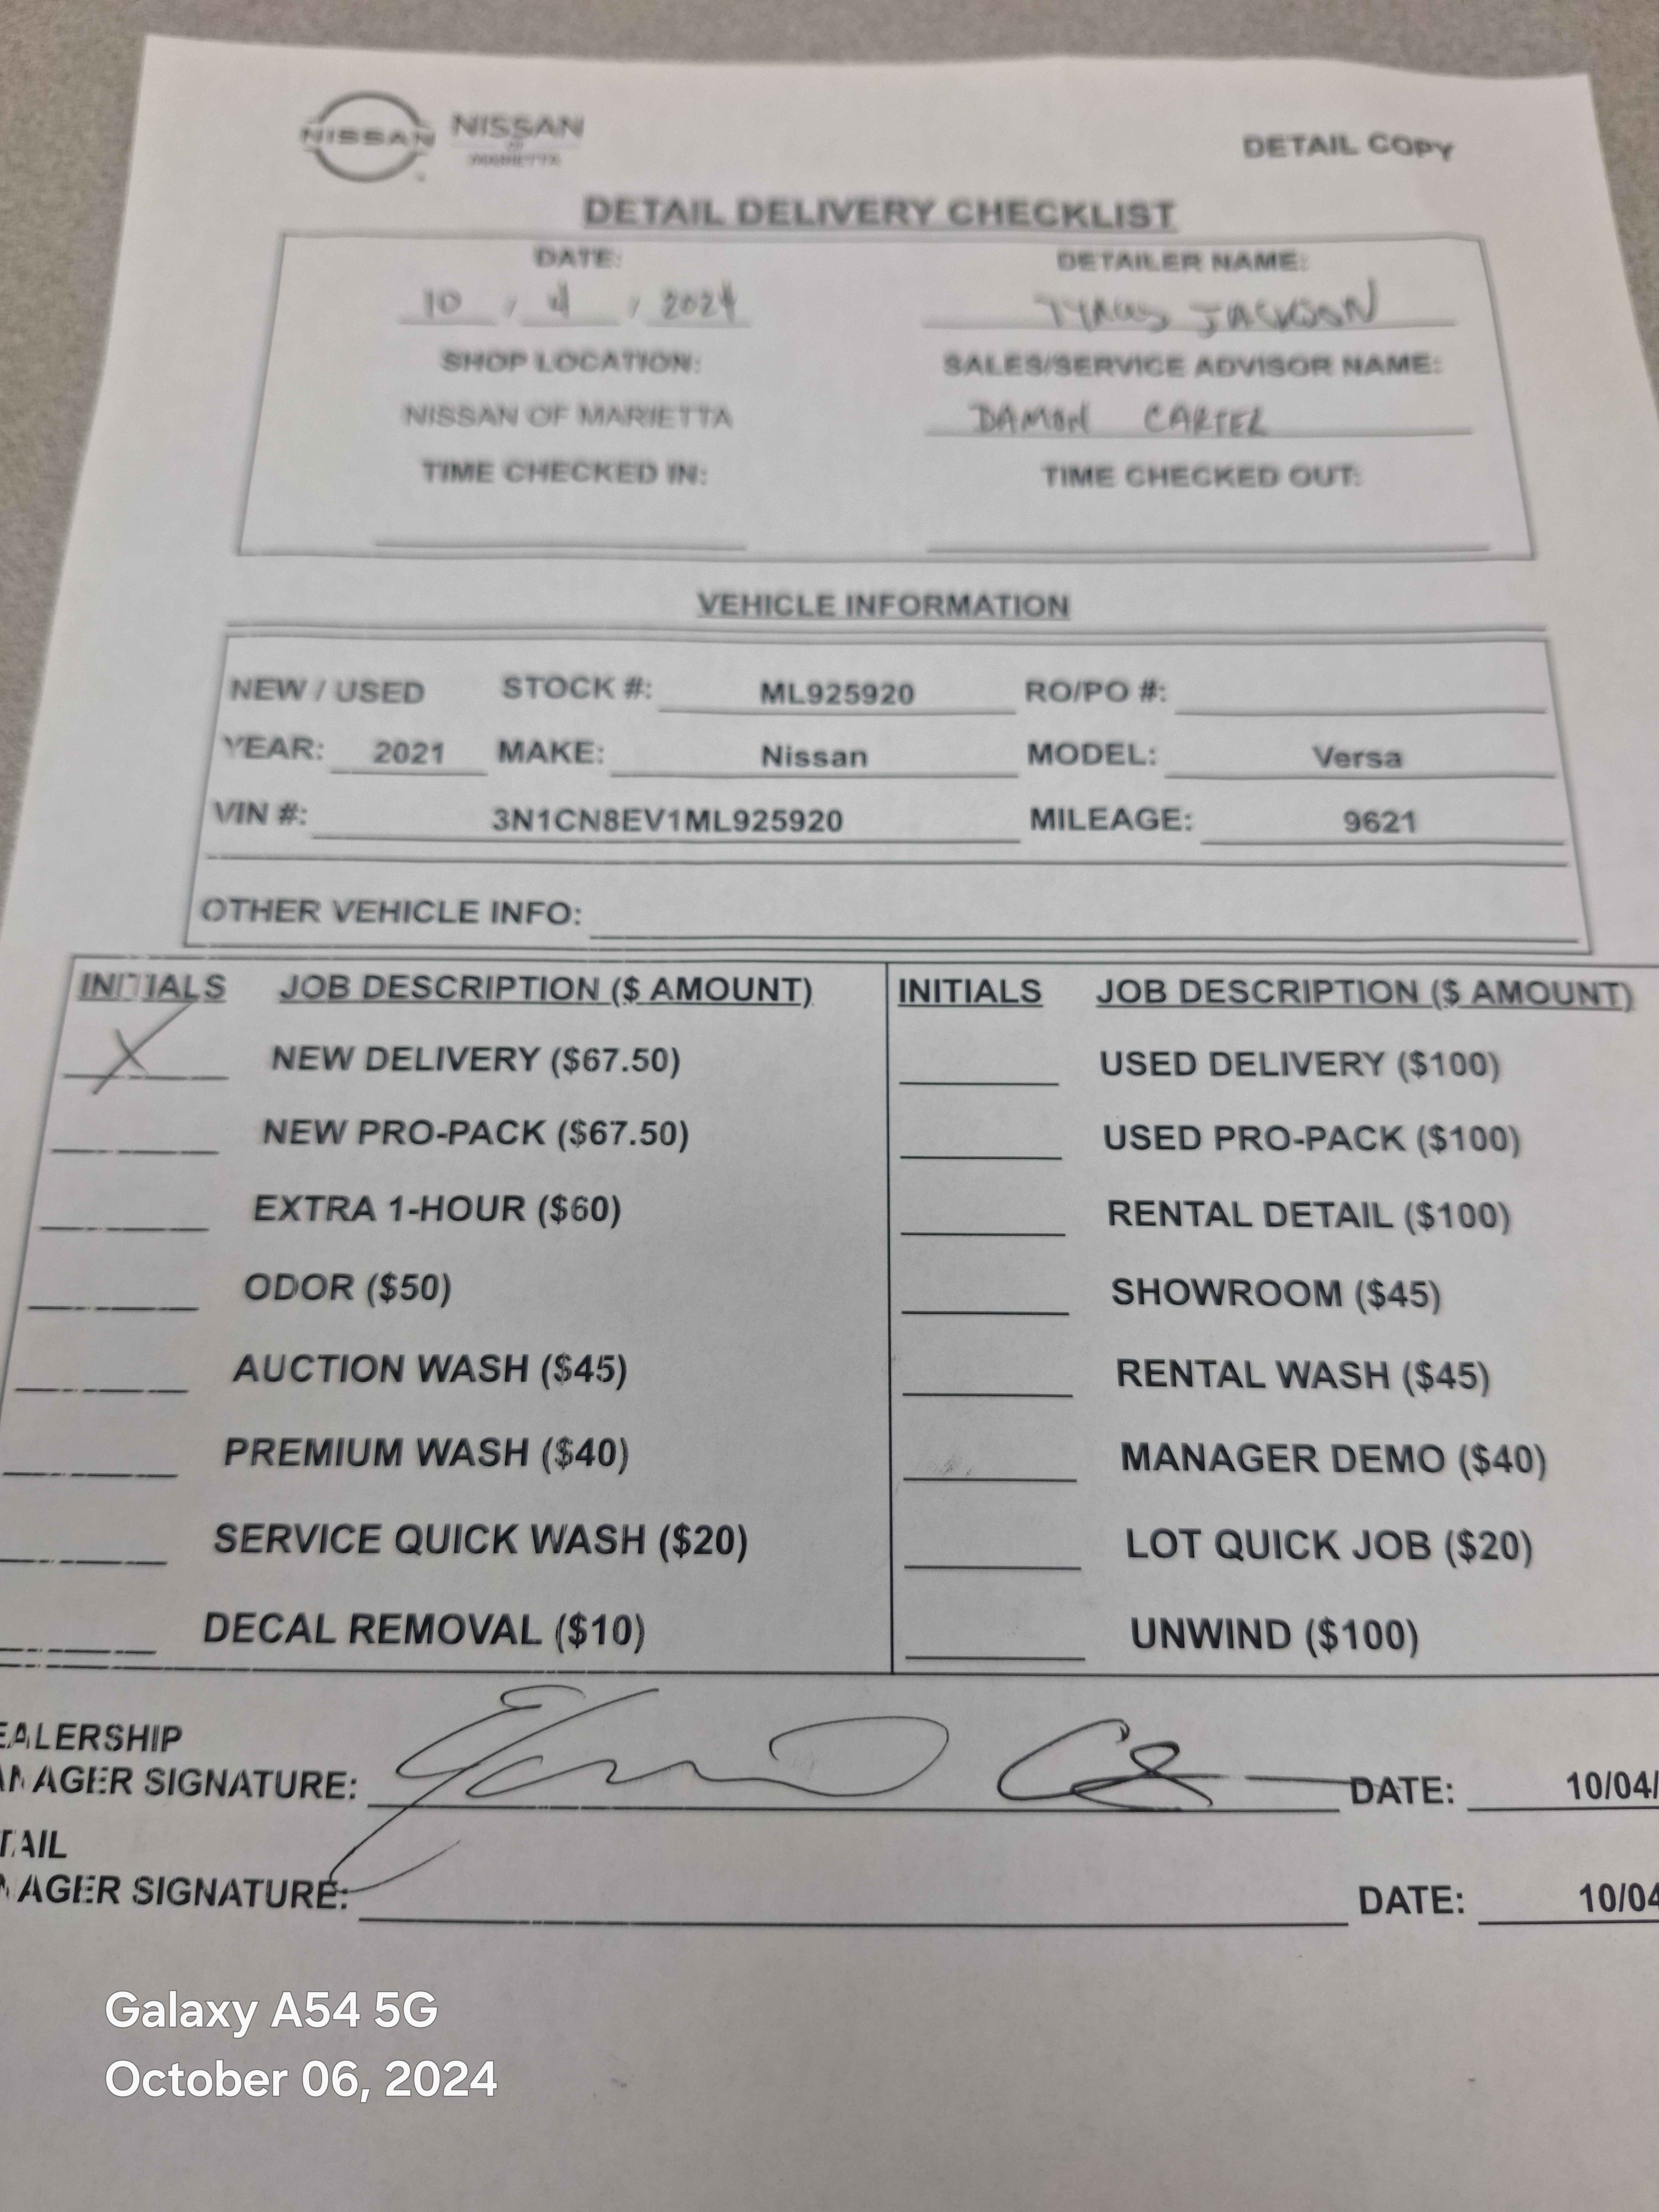 NISSAN NISSAN
OF
MARIETTA
DETAIL COPY
DETAIL DELIVERY CHECKLIST
DATE: DETAILER NAME:
10 / 4 / 2024 JACKSON
SHOP LOCATION: SALES/SERVICE ADVISOR NAME:
NISSAN OF MARIETTA DAMON CARTER
TIME CHECKED IN: TIME CHECKED OUT:
VEHICLE INFORMATION
NEW / USED STOCK #: ML925920 RO/PO #:
YEAR: 2021 MAKE: Nissan MODEL: Versa
VIN #: 3N1CN8EV1ML925920 MILEAGE: 9621
OTHER VEHICLE INFO:
INITIALS JOB DESCRIPTION ($ AMOUNT) INITIALS JOB DESCRIPTION ($ AMOUNT)
X NEW DELIVERY ($67.50) USED DELIVERY ($100)
NEW PRO-PACK ($67.50) USED PRO-PACK ($100)
EXTRA 1-HOUR ($60) RENTAL DETAIL ($100)
ODOR ($50) SHOWROOM ($45)
AUCTION WASH ($45) RENTAL WASH ($45)
PREMIUM WASH ($40) MANAGER DEMO ($40)
SERVICE QUICK WASH ($20) LOT QUICK JOB ($20)
DECAL REMOVAL ($10) UNWIND ($100)
EALERSHIP
ANAGER SIGNATURE: DATE: 10/04/
TAIL
NAGER SIGNATURE: DATE: 10/04
Galaxy A54 5G
October 06, 2024